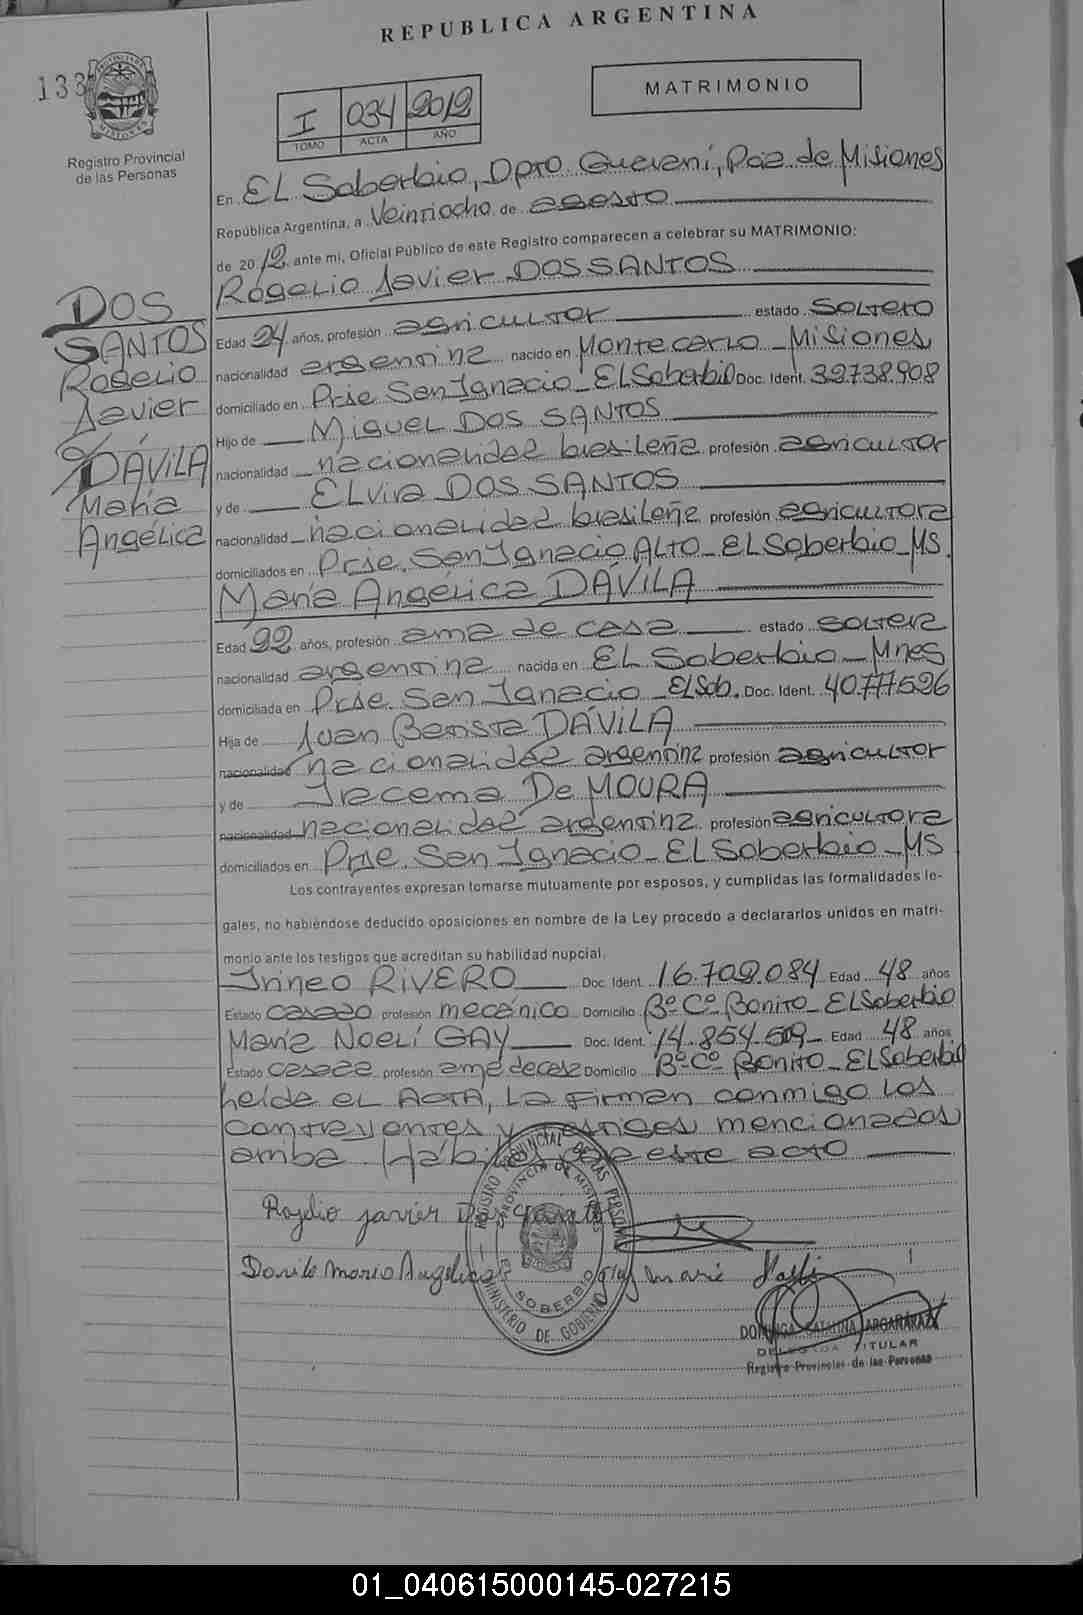 REPUBLICA ARGENTINA
133
MATRIMONIO
I 034 2012
TOMO ACTA AÑO
Registro Provincial
de las Personas
En EL Soberbio, Dpto. Guaraní, Pcia de Misiones
República Argentina, a Veintiocho de agosto
de 2012 ante mi, Oficial Público de este Registro comparecen a celebrar su MATRIMONIO:
Rogelio Javier DOS SANTOS
DOS
SANTOS
Rogelio
Javier
c/
DÁVILA
María
Angélica
Edad 24 años, profesión agricultor estado soltero
nacionalidad argentina nacido en Montecarlo - Misiones
domiciliado en Prje San Ignacio - El Soberbio Doc. Ident. 32.738.908
Hijo de Miguel DOS SANTOS
nacionalidad nacionalidad brasileña profesión agricultor
y de ELvira DOS SANTOS
nacionalidad nacionalidad brasileña profesión agricultora
domiciliados en Prje. San Ignacio ALTO - EL Soberbio - MS.
María Angélica DÁVILA
Edad 22 años, profesión ama de casa estado soltera
nacionalidad argentina nacida en EL Soberbio - Mnes
domiciliada en Prje. San Ignacio - El Sob. Doc. Ident. 40.777.526
Hija de Juan Bautista DÁVILA
nacionalidad nacionalidad argentina profesión agricultor
y de Iracema De MOURA
nacionalidad nacionalidad argentina profesión agricultora
domiciliados en Prje. San Ignacio - EL Soberbio - MS
Los contrayentes expresan tomarse mutuamente por esposos, y cumplidas las formalidades le-
gales, no habiéndose deducido oposiciones en nombre de la Ley procedo a declararlos unidos en matri-
monio ante los testigos que acreditan su habilidad nupcial.
Irineo RIVERO Doc. Ident. 16.702.084 Edad 48 años
Estado casado profesión mecánico Domicilio Bº Cº Bonito - El Soberbio
María NOELÍ GAY Doc. Ident. 14.854.509 Edad 48 años
Estado casada profesión ama de casa Domicilio Bº Cº Bonito - EL Soberbio
leída EL ACTA, La Firman conmigo los
contrayentes y testigos mencionados
arriba. Hábiles para este acto
Rogelio javier Dos Santos
Davila Maria Angelica
Gay Maria Noeli
REGISTRO PROVINCIAL DE LAS PERSONAS
PROVINCIA DE MISIONES
EL SOBERBIO
MINISTERIO DE GOBIERNO
CATALINA ARGAÑARAZ
DELEGADA TITULAR
Registro Provincial de las Personas
01_040615000145-027215